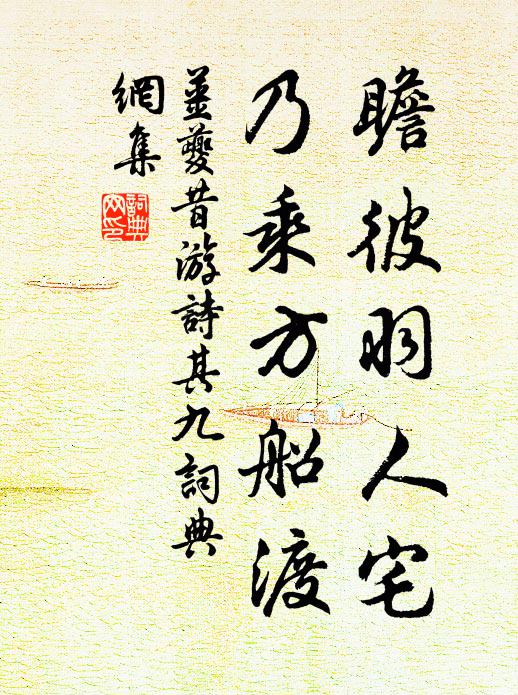 瞻彼羽人宅
乃乘方船渡
姜夔昔游詩其九詞典
網集
詞典
网印